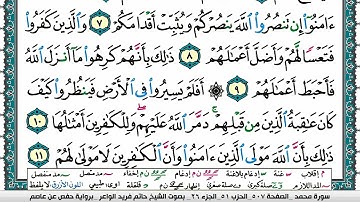 ءَامَنُوٓا۟ إِن تَنصُرُوا۟ ٱللَّهَ يَنصُرْكُمْ وَيُثَبِّتْ أَقْدَامَكُمْ ٧ وَٱلَّذِينَ كَفَرُوا۟
فَتَعْسًا لَّهُمْ وَأَضَلَّ أَعْمَٰلَهُمْ ٨ ذَٰلِكَ بِأَنَّهُمْ كَرِهُوا۟ مَآ أَنزَلَ ٱللَّهُ
فَأَحْبَطَ أَعْمَٰلَهُمْ ٩ أَفَلَمْ يَسِيرُوا۟ فِى ٱلْأَرْضِ فَيَنظُرُوا۟ كَيْفَ
كَانَ عَٰقِبَةُ ٱلَّذِينَ مِن قَبْلِهِمْ دَمَّرَ ٱللَّهُ عَلَيْهِمْ وَلِلْكَٰفِرِينَ أَمْثَٰلُهَا ١٠
ذَٰلِكَ بِأَنَّ ٱللَّهَ مَوْلَى ٱلَّذِينَ ءَامَنُوا۟ وَأَنَّ ٱلْكَٰفِرِينَ لَا مَوْلَىٰ لَهُمْ ١١
سورة محمد - الصفحة ٥٠٧ الحزب ٥١ الجزء ٢٦ بصوت الشيخ حاتم فريد الواعر - برواية حفص عن عاصم